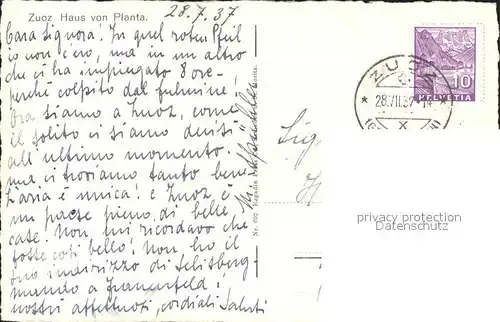 Zuoz Haus von Planta.
28.7.37
Cara Signora! In quel roten Pfeil
io non c'ero, ma in un altro
che ci ha impiegato 8 ore
perché colpito dal fulmine!
Ora siamo a Zuoz, come
il solito ci siamo decisi
all'ultimo momento.
ma ci troviamo tanto bene
l'aria è unica! e Zuoz è
un paese pieno di belle
case. Non mi ricordavo che
fosse così bello! Non ho il
suo indirizzo di Selisberg
mando a Frauenfeld!
nostri affettuosi, cordiali saluti
Nr. 602 Engadin
Sig
ZUOZ
28.VII.37-14
10
HELVETIA
privacy protection
Datenschutz